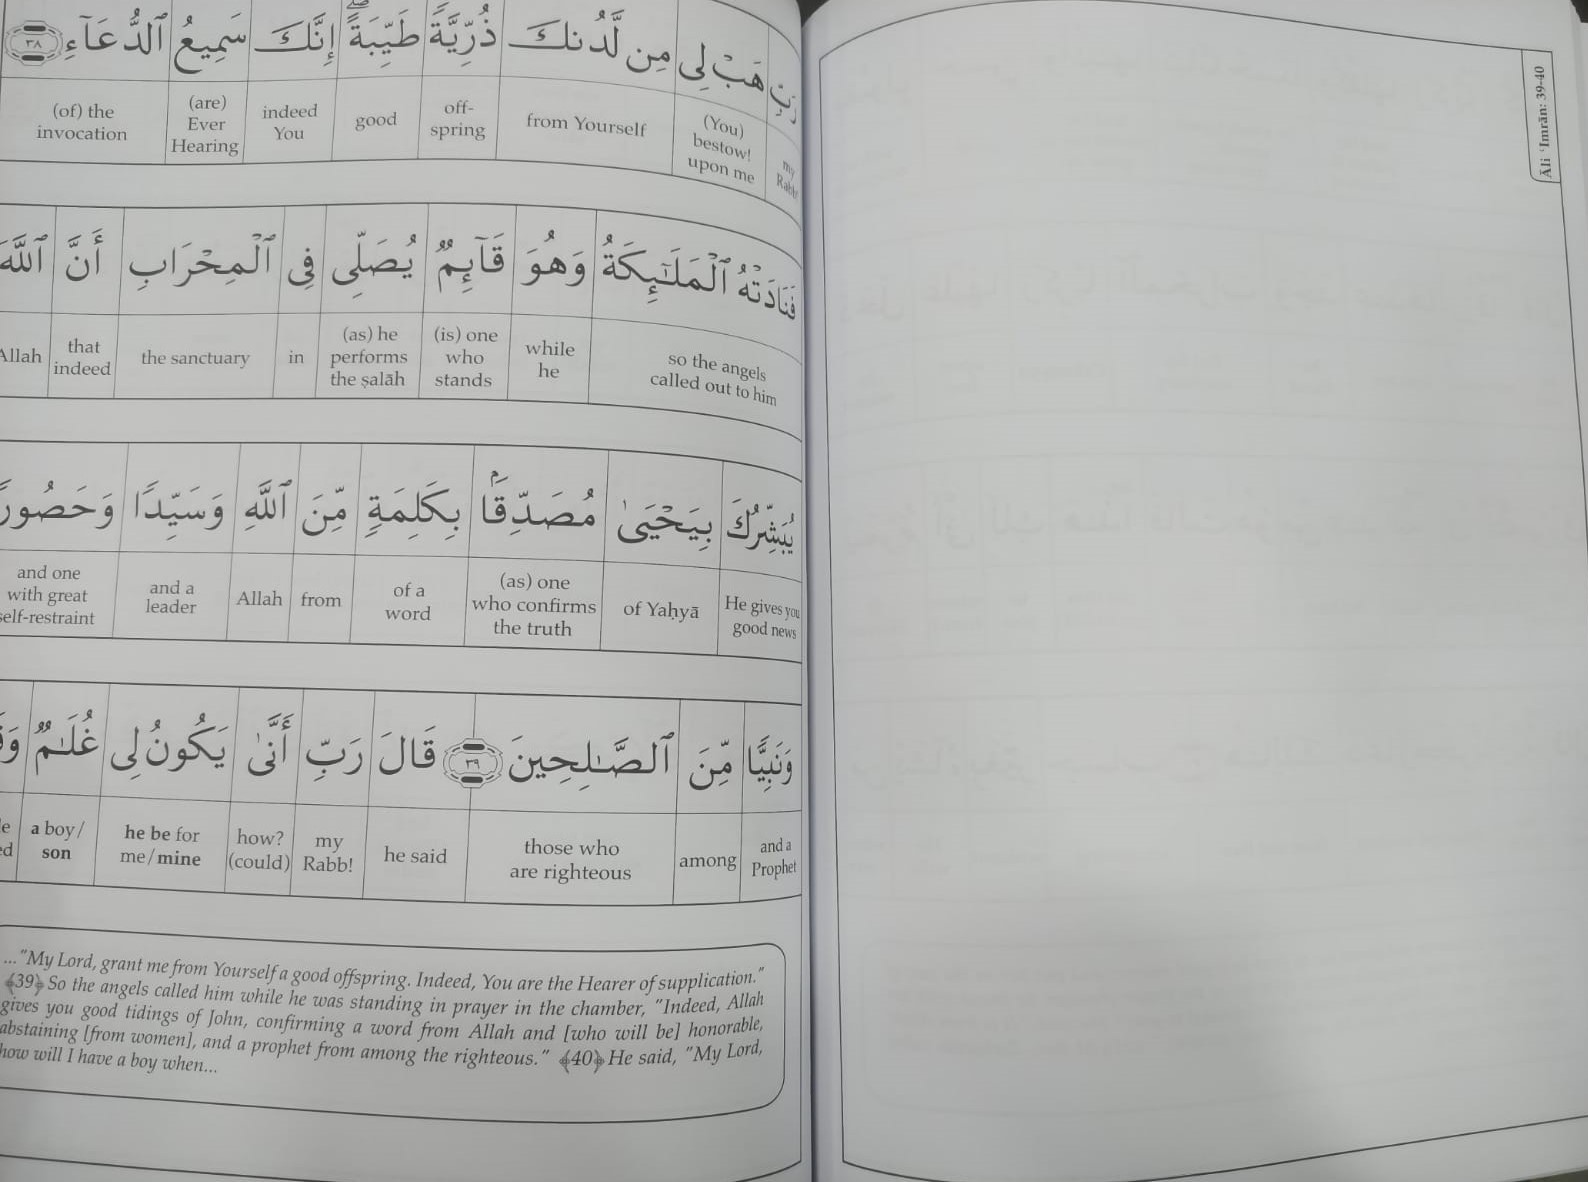 رَبِّ هَبْ لِى مِن لَّدُنكَ ذُرِّيَّةً طَيِّبَةً ۖ إِنَّكَ سَمِيعُ ٱلدُّعَآءِ ٣٨
my Rabb! (You) bestow! upon me from Yourself off-spring good indeed You (are) Ever Hearing (of) the invocation
فَنَادَتْهُ ٱلْمَلَـٰٓئِكَةُ وَهُوَ قَآئِمٌ يُصَلِّى فِى ٱلْمِحْرَابِ أَنَّ ٱللَّهَ
so the angels called out to him while he (is) one who stands (as) he performs the ṣalāh in the sanctuary that indeed Allah
يُبَشِّرُكَ بِيَحْيَىٰ مُصَدِّقًۢا بِكَلِمَةٍ مِّنَ ٱللَّهِ وَسَيِّدًا وَحَصُورًا
He gives you good news of Yaḥyā (as) one who confirms the truth of a word from Allah and a leader and one with great self-restraint
وَنَبِيًّا مِّنَ ٱلصَّـٰلِحِينَ ٣٩ قَالَ رَبِّ أَنَّىٰ يَكُونُ لِى غُلَـٰمٌ
and a Prophet among those who are righteous he said my Rabb! how? (could) he be for me/mine a boy/ son
..."My Lord, grant me from Yourself a good offspring. Indeed, You are the Hearer of supplication."
﴾39﴿ So the angels called him while he was standing in prayer in the chamber, "Indeed, Allah
gives you good tidings of John, confirming a word from Allah and [who will be] honorable,
abstaining [from women], and a prophet from among the righteous." ﴾40﴿ He said, "My Lord,
how will I have a boy when...
Āli ʿImrān: 39-40